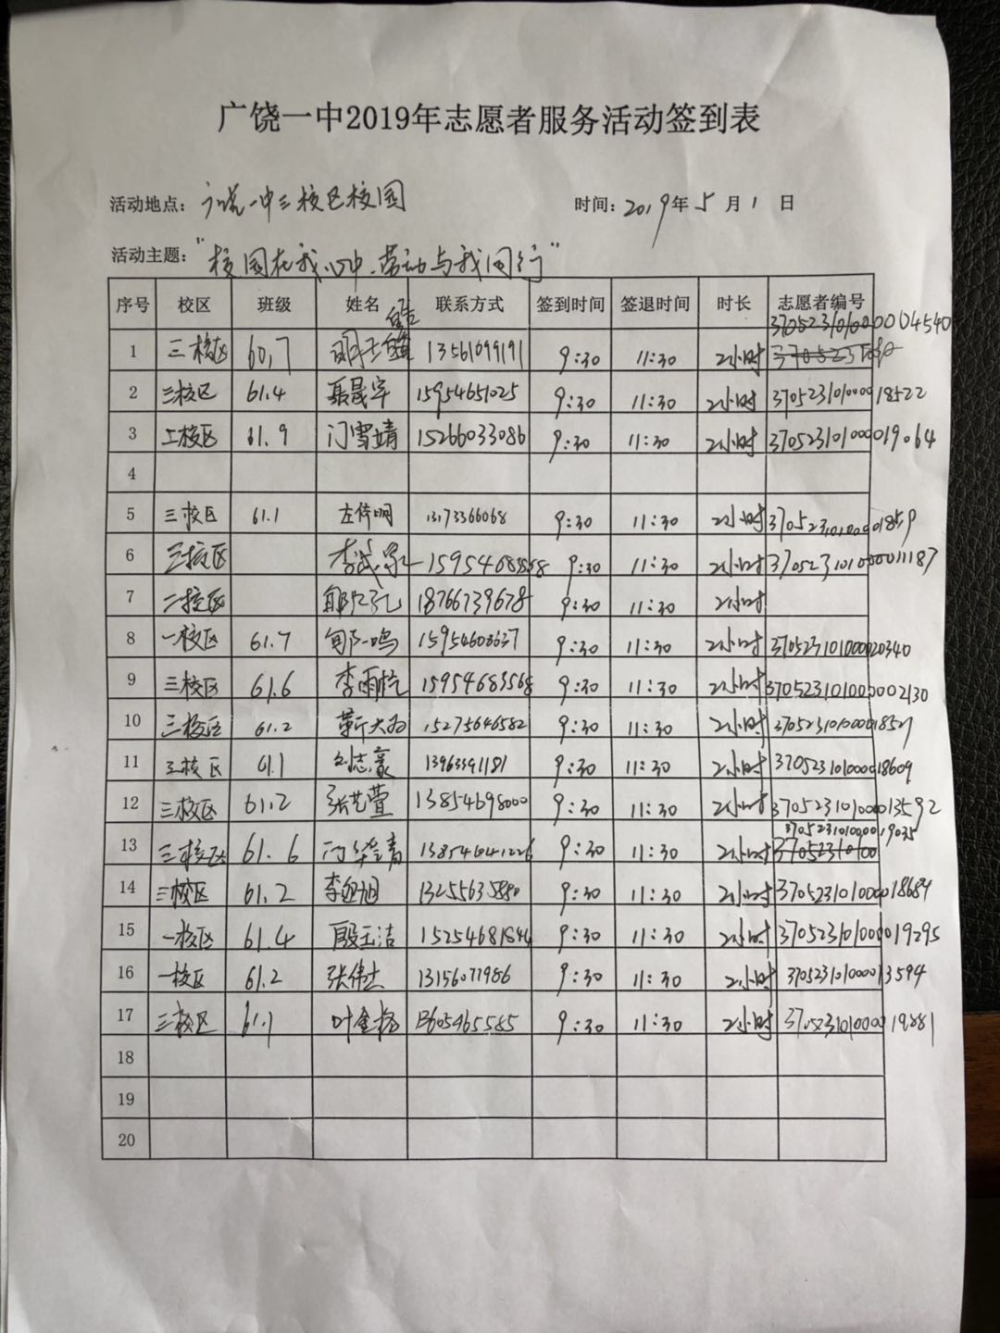 广饶一中2019年志愿者服务活动签到表
活动地点：广饶一中三校区校园 时间：2019年5月1日
活动主题：“校园在我心中，劳动与我同行”
序号 校区 班级 姓名 联系方式 签到时间 签退时间 时长 志愿者编号
1 三校区 60.7 13561099191 9:30 11:30 2小时
2 三校区 61.4 聂晟宇 15954651025 9:30 11:30 2小时 370523101000018522
3 二校区 61.9 门雪婧 15266033086 9:30 11:30 2小时 370523101000019064
4
5 三校区 61.1 左倖明 13173366068 9:30 11:30 2小时
6 三校区 9:30 11:30 2小时 370523101000011187
7 二校区 18766739678 9:30 11:30 2小时
8 一校区 61.7 9:30 11:30 2小时 370523101000020340
9 三校区 61.6 李雨杭 15954683568 9:30 11:30 2小时 370523101000002130
10 三校区 61.2 靳大为 15275646582 9:30 11:30 2小时
11 三校区 61.1 刘志豪 13963391181 9:30 11:30 2小时 370523101000018609
12 三校区 61.2 张艺萱 13854698000 9:30 11:30 2小时 370523101000013592
13 三校区 61.6 9:30 11:30 2小时 370523101000019035
14 三校区 61.2 13255635880 9:30 11:30 2小时 370523101000018684
15 一校区 61.4 殷玉洁 15254681844 9:30 11:30 2小时 370523101000019295
16 一校区 61.2 张伟杰 13156071986 9:30 11:30 2小时 370523101000013594
17 三校区 61.1 叶鑫杨 13605465585 9:30 11:30 2小时 370523101000019881
18
19
20